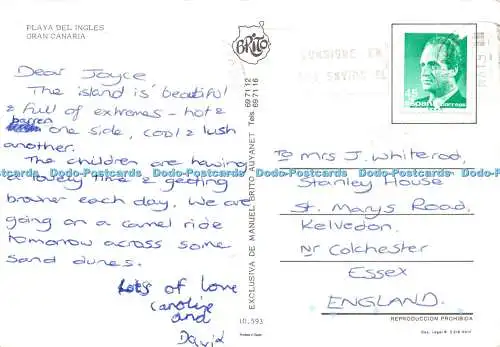 PLAYA DEL INGLES
GRAN CANARIA
BRITO
Dear Joyce
The island is beautiful
& full of extremes - hot &
barren one side, cool & lush
another.
The children are having
a lovely time & getting
browner each day. We are
going on a camel ride
tomorrow across some
sand dunes.
Lots of love
Caroline
and
David
EXCLUSIVA DE MANUEL BRITO AUYANET Tels. 69 71 12 69 71 16
10.593
45
ESPAÑA correos
CONSIGNE EN
SUS ENVIOS EL
To Mrs J. Whiterod,
Stanley House
St. Marys Road,
Kelvedon.
Nr Colchester
Essex
ENGLAND.
REPRODUCCION PROHIBIDA
Dodo-Postcards Dodo-Postcards Dodo-Postcards Dodo-Postcards